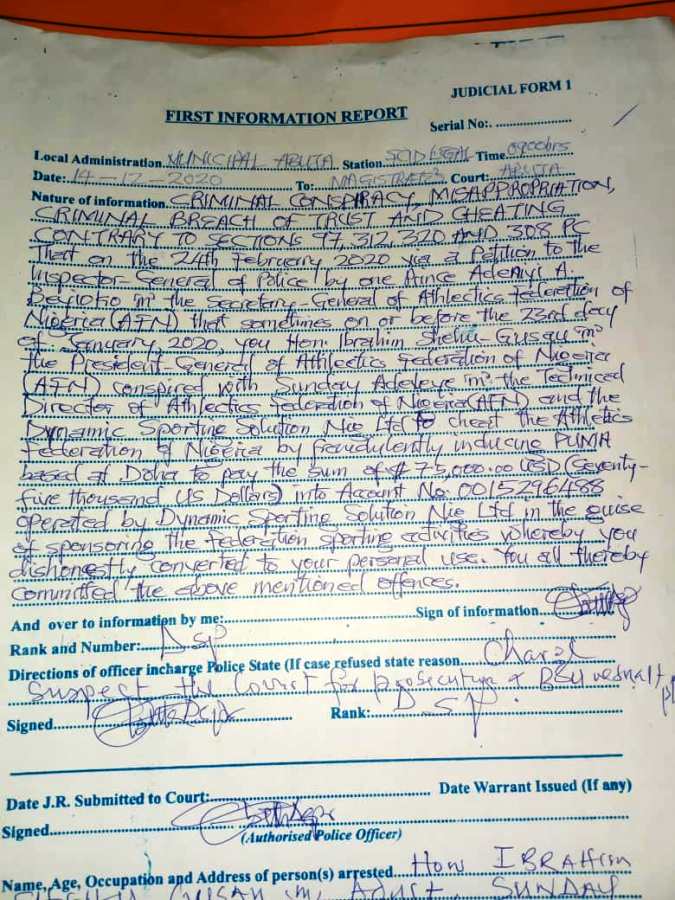 JUDICIAL FORM 1
FIRST INFORMATION REPORT
Serial No:. ........................
Local Administration. MUNICIPAL ABUJA Station. SCID LEGAL Time. 0900hrs
Date: 14-12-2020 To: MAGISTRATES Court: ABUJA
Nature of information. CRIMINAL CONSPIRACY, MISAPPROPRIATION,
CRIMINAL BREACH OF TRUST AND CHEATING
CONTRARY TO SECTIONS 97, 312, 320 AND 308 PC
That on the 24th February 2020 via a Petition to the
Inspector-General of Police by one Prince Adeniyi A.
Beyioku 'm' the Secretary-General of Athlectics federation of
Nigeria (AFN) that sometimes on or before the 23rd day
of January, 2020, you Hon. Ibrahim Shehu-Gusau 'm'
the President-General of Athlectics federation of Nigeria
(AFN) conspired with Sunday Adeleye 'm' the Technical
Director of Athlectics federation of Nigeria (AFN) and the
Dynamic Sporting Solution Nig Ltd to cheat the Athletics
federation of Nigeria by fraudulently inducing PUMA
based at Doha to pay the sum of $75,000.00 USD (Seventy-
five thousand US Dollars) into Account No: 0015296488
operated by Dynamic Sporting Solution Nig Ltd in the guise
of sponsoring the federation sporting activities whereby you
dishonestly converted to your personal use. You all thereby
committed the above mentioned offences.
And over to information by me:........................ Sign of information
Rank and Number: DSP
Directions of officer incharge Police State (If case refused state reason. Charge
suspect the Court for prosecution
Signed........................ Rank: DSP
Date J.R. Submitted to Court:........................ Date Warrant Issued (If any)
Signed........................
(Authorised Police Officer)
Name, Age, Occupation and Address of person(s) arrested. Hon IBRAHIM
SHEHU GUSAU 'm' Adult, SUNDAY